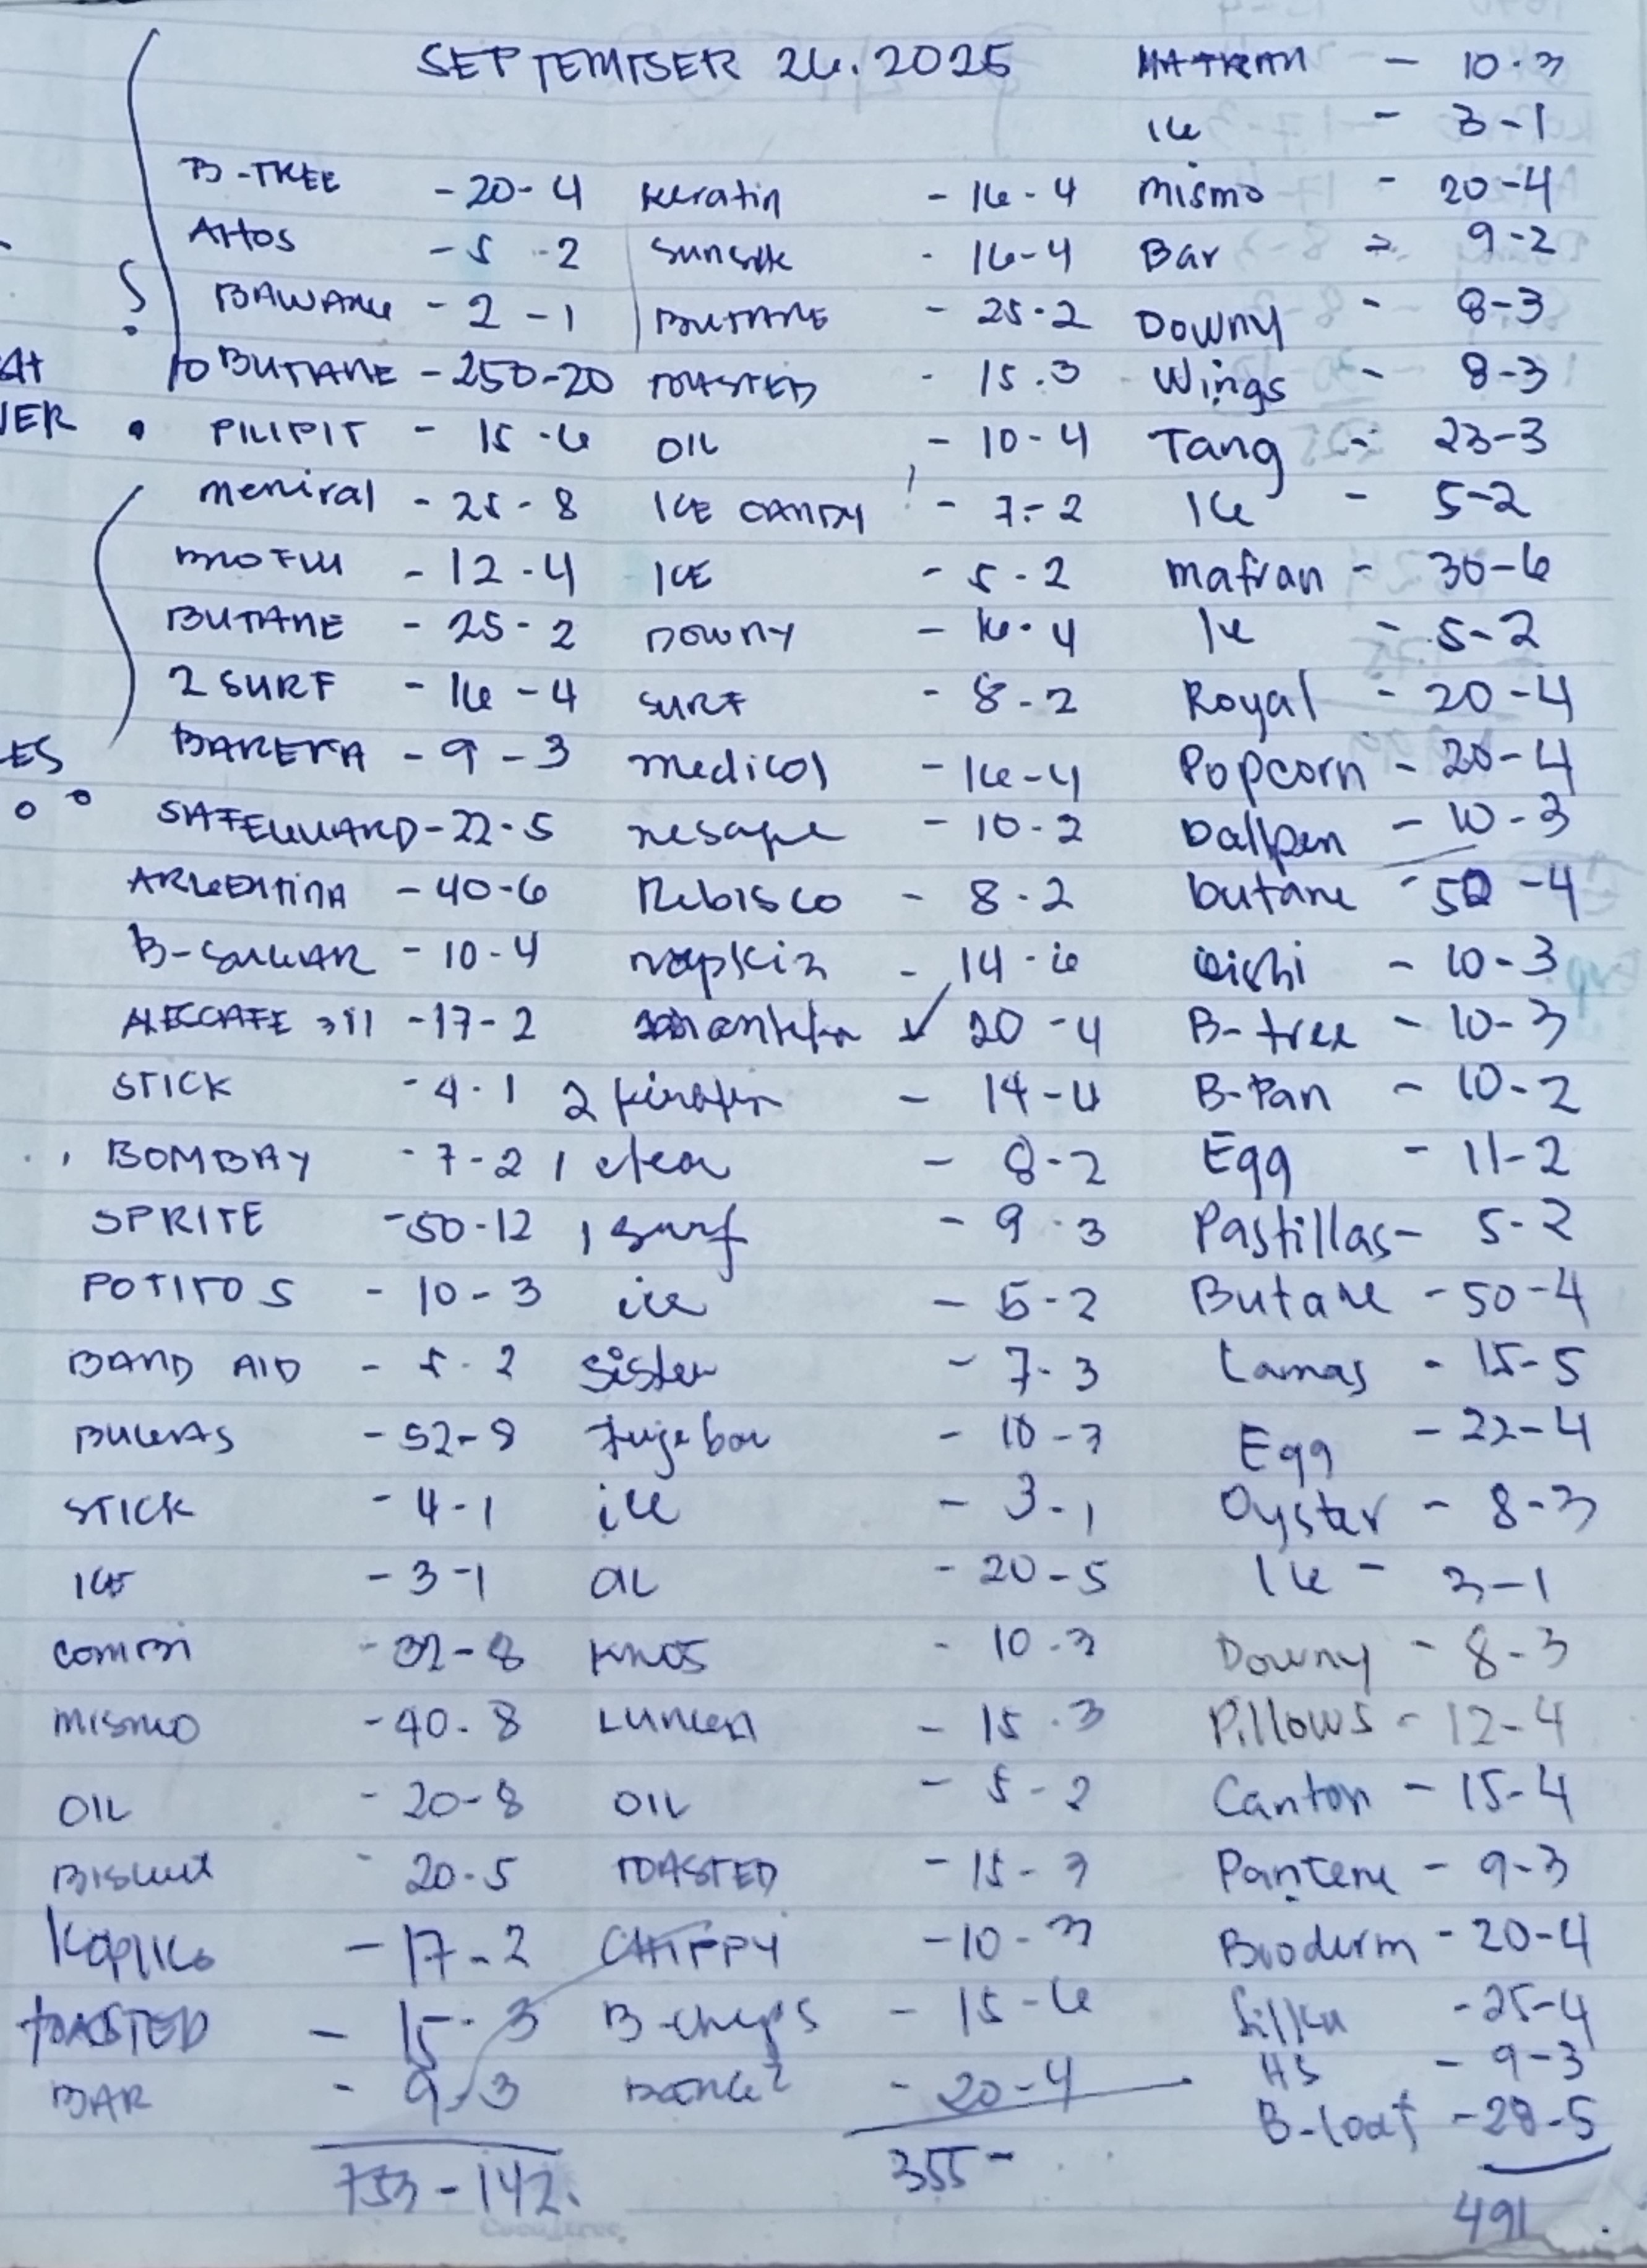 SEPTEMBER 26, 2025
B-TREE - 20 - 4
Attos - 5 - 2
BAWANG - 2 - 1
10 BUTANE - 250 - 20
PILIPIT - 15 - 6
meniral - 25 - 8
- 12 - 4
BUTANE - 25 - 2
2 SURF - 16 - 4
BARETA - 9 - 3
SAFEGUARD - 22 - 5
ARGENTINA - 40 - 6
B-SUGAR - 10 - 4
NESCAFE 3 i 1 - 17 - 2
STICK - 4 - 1
BOMBAY - 7 - 2
SPRITE - 50 - 12
POTITOS - 10 - 3
BAND AID - 5 - 2
BUGAS - 52 - 8
STICK - 4 - 1
ICE - 3 - 1
COMBI - 32 - 8
MISMO - 40 - 8
OIL - 20 - 8
BISCUIT - 20 - 5
Kopiko - 17 - 2
TOASTED - 15 - 3
BAR - 9 - 3
753 - 142
Keratin - 16 - 4
Sunsilk - 16 - 4
BUTANE - 25 - 2
TOASTED - 15 - 3
OIL - 10 - 4
ICE CANDY - 7 - 2
ICE - 5 - 2
DOWNY - 16 - 4
SURF - 8 - 2
medicol - 16 - 4
- 10 - 2
Rebisco - 8 - 2
napkin - 14 - 6
20 - 4
2 - 14 - 4
1 clear - 8 - 2
1 surf - 9 - 3
ice - 5 - 2
Sister - 7 - 3
- 10 - 3
ice - 3 - 1
OIL - 20 - 5
- 10 - 3
- 15 - 3
OIL - 5 - 2
TOASTED - 15 - 3
CHIPPY - 10 - 3
B-chips - 15 - 6
- 20 - 4
355 -
- 10 - 3
Ice - 3 - 1
mismo - 20 - 4
Bar - 9 - 2
Downy - 8 - 3
Wings - 8 - 3
Tang - 23 - 3
Ice - 5 - 2
mafran - 30 - 6
Ice - 5 - 2
Royal - 20 - 4
Popcorn - 20 - 4
Ballpen - 10 - 3
butane - 50 - 4
oishi - 10 - 3
B-tree - 10 - 3
B-Pan - 10 - 2
Egg - 11 - 2
Pastillas - 5 - 2
Butane - 50 - 4
Lamas - 15 - 5
Egg - 22 - 4
Oyster - 8 - 3
Ice - 3 - 1
Downy - 8 - 3
Pillows - 12 - 4
Canton - 15 - 4
Pantene - 9 - 3
Bioderm - 20 - 4
Silka - 25 - 4
HS - 9 - 3
B-loaf - 28 - 5
491